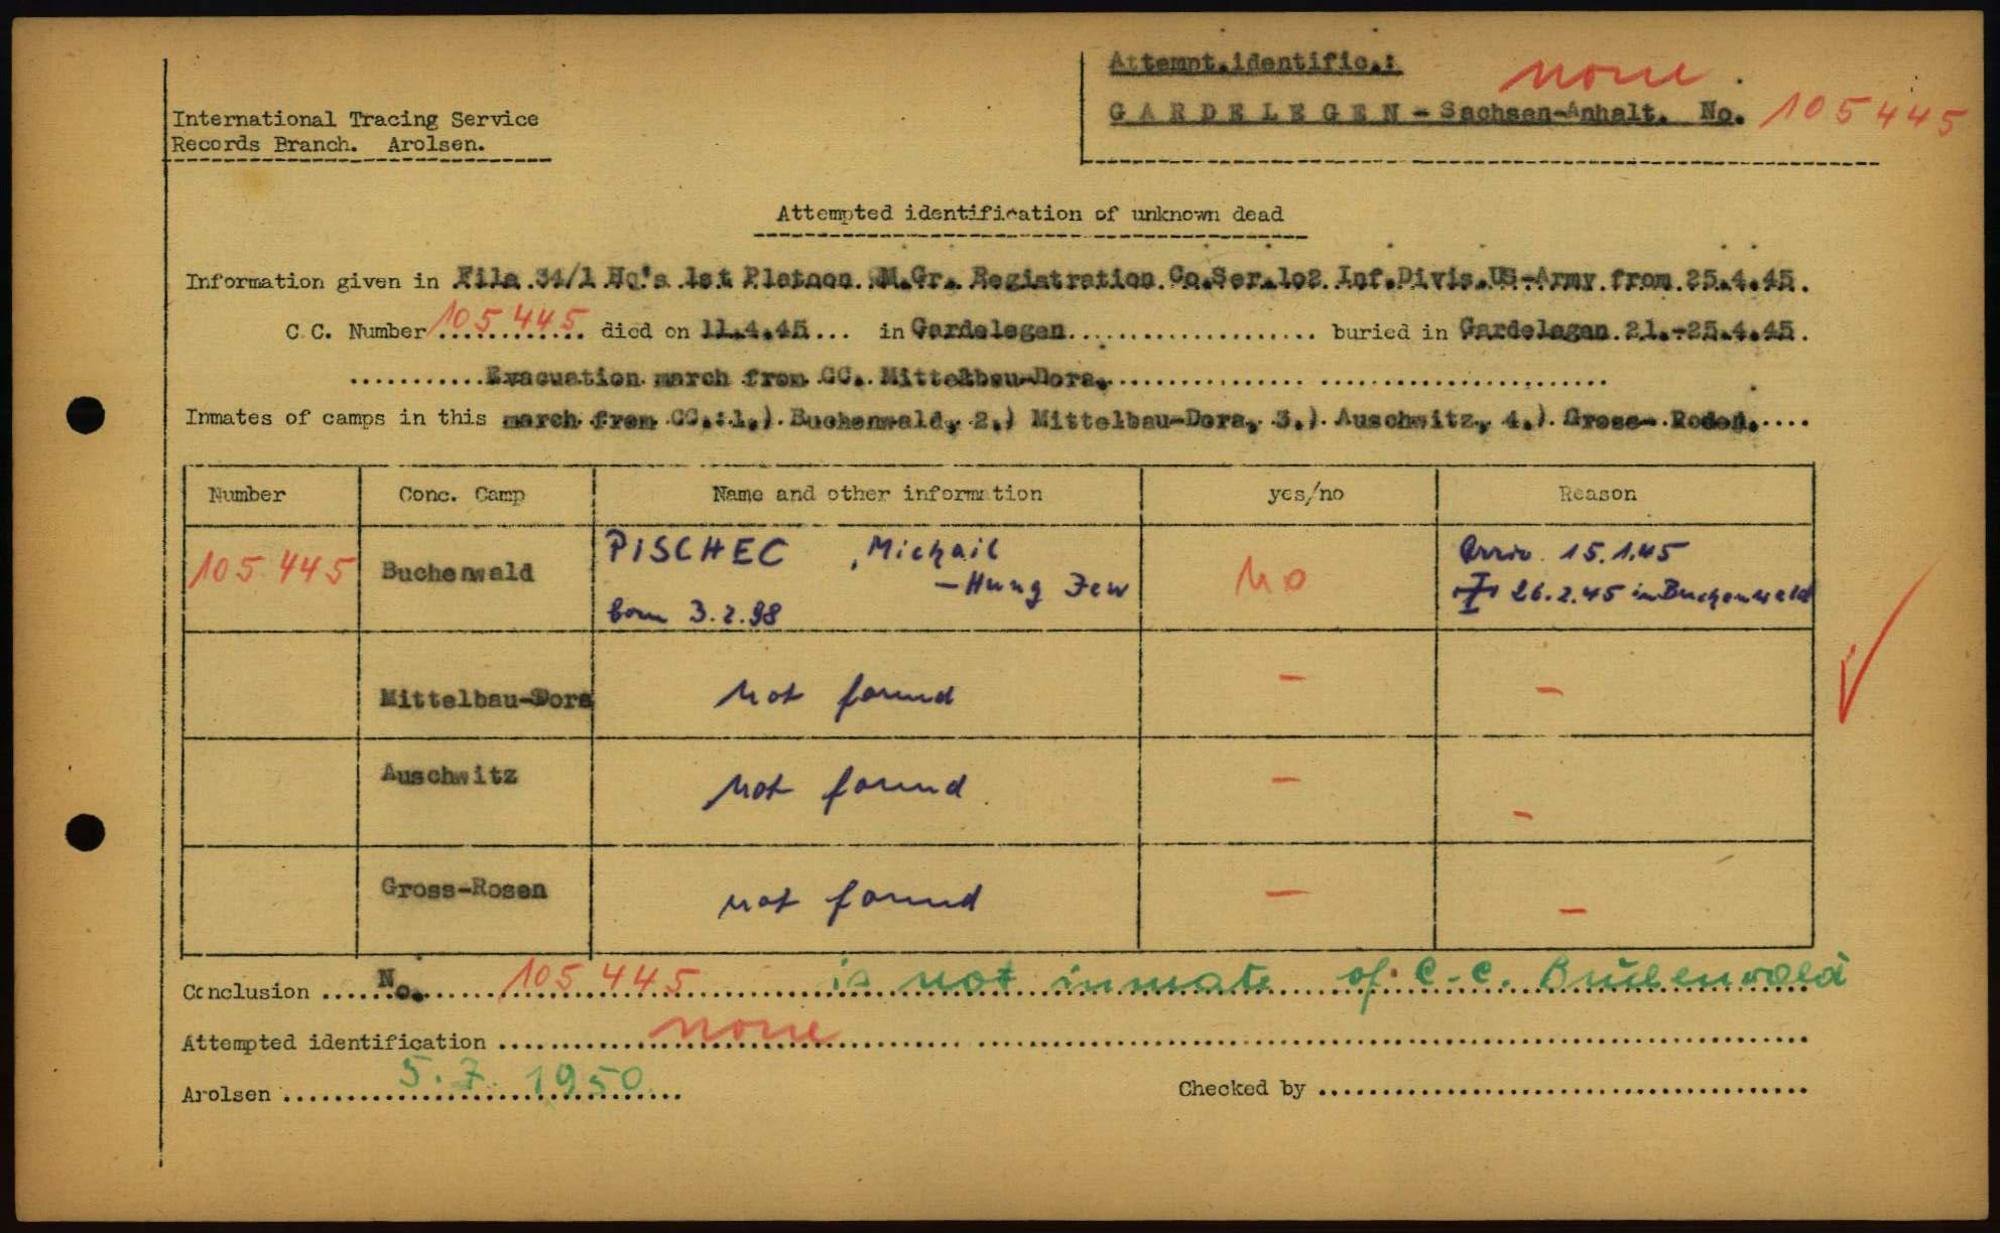 Attempt.identific.: none
GARDELEGEN - Sachsen-Anhalt. No. 105 445
International Tracing Service
Records Branch. Arolsen.
Attempted identification of unknown dead
Information given in File 34/1 Hq's 1st Platoon M.Gr. Registration Co.Ser.lo2 Inf.Divis.US-Army from 25.4.45.
C.C. Number 105 445 died on 11.4.45 in Gardelegen buried in Gardelegen 21.-25.4.45.
Evacuation march from CC. Mittelbau-Dora.
Inmates of camps in this march from CC.:1.) Buchenwald, 2.) Mittelbau-Dora, 3.) Auschwitz, 4.) Gross-
Number Conc. Camp Name and other information yes/no Reason
105 445 Buchenwald PISCHEC, Michail no Arriv. 15.1.45
- Hung Jew
born 3.2.98 26.2.45 in Buchenwald
Mittelbau-Dora not found - -
Auschwitz not found - -
Gross-Rosen not found - -
Conclusion No. 105 445 is not inmate of C.C. Buchenwald
Attempted identification none
Arolsen 5.7.1950 Checked by